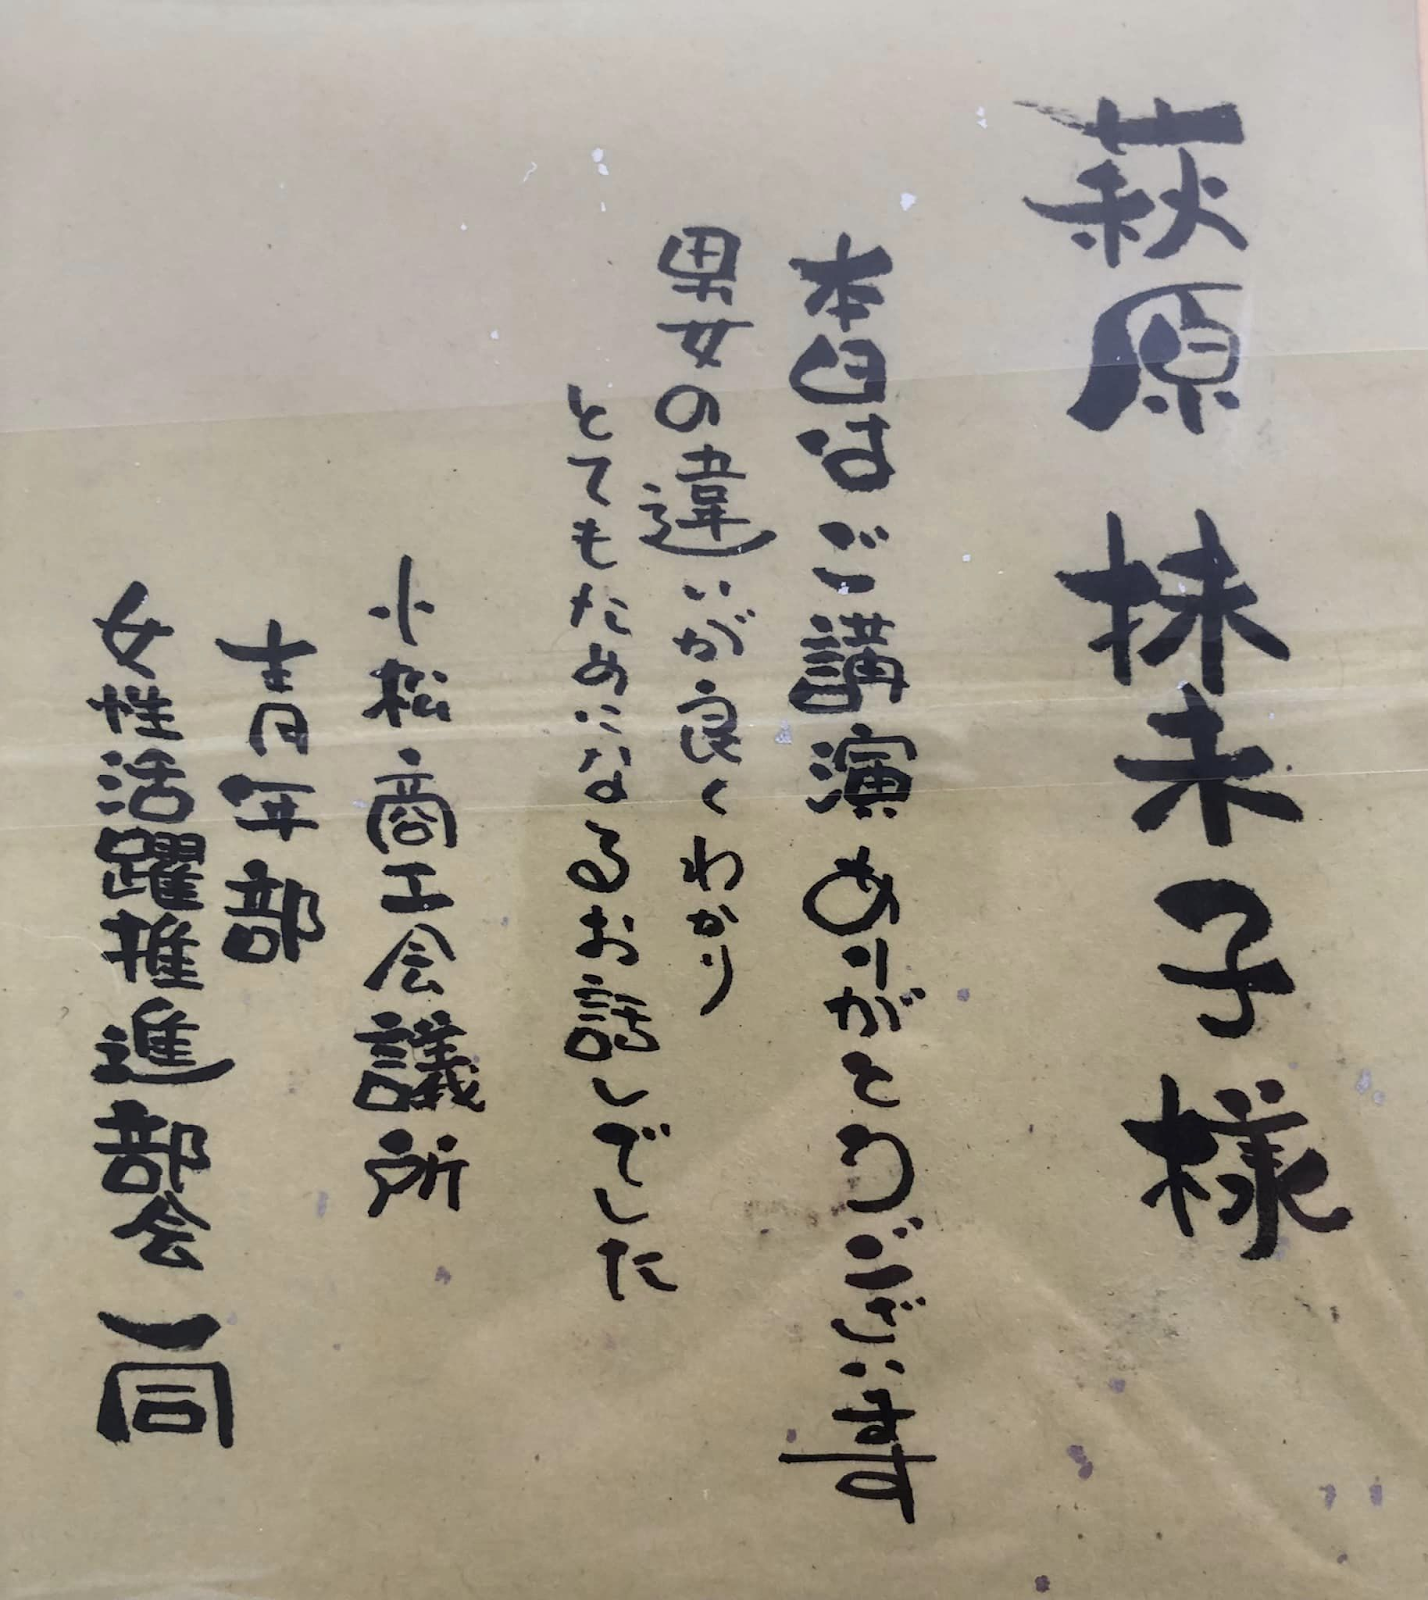 萩原 抹未子様
本日はご講演ありがとうございます
男女の違いが良くわかり
とてもためになるお話しでした
小松商工会議所
青年部
女性活躍推進部会一同